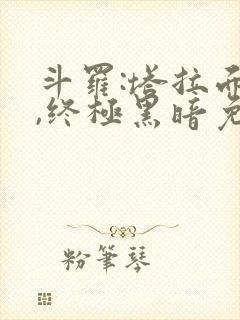 斗羅:塔拉
,終極黑暗免
粉筆琴